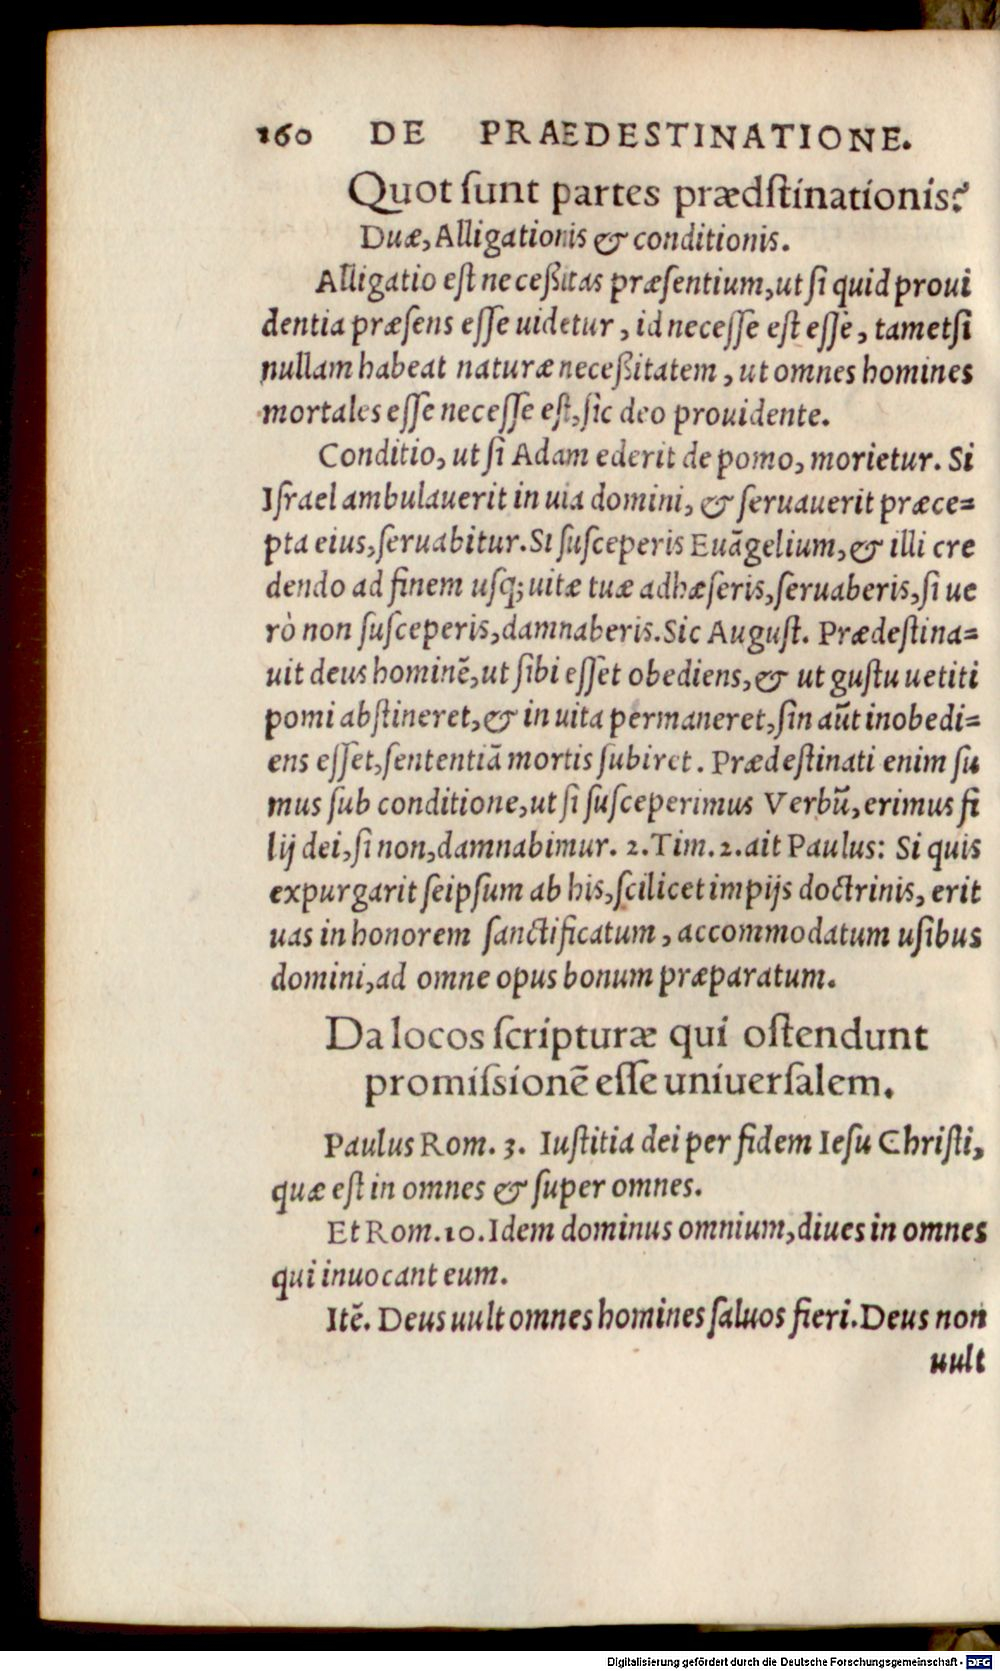 160 DE PRAEDESTINATIONE.
Quot ſunt partes prædſtinationis?
Duæ, Alligationis & conditionis.
Alligatio eſt neceßitas præſentium, ut ſi quid proui
dentia præſens eſſe uidetur, id neceſſe eſt eſſe, tametſi
nullam habeat naturæ neceßitatem, ut omnes homines
mortales eſſe neceſſe eſt, ſic deo prouidente.
Conditio, ut ſi Adam ederit de pomo, morietur. Si
Iſrael ambulauerit in uia domini, & ſeruauerit præce=
pta eius, ſeruabitur. Si ſuſceperis Euãgelium, & illi cre
dendo ad finem uſq; uitæ tuæ adhæſeris, ſeruaberis, ſi ue
rò non ſuſceperis, damnaberis. Sic Auguſt. Prædeſtina=
uit deus hominẽ, ut ſibi eſſet obediens, & ut guſtu uetiti
pomi abſtineret, & in uita permaneret, ſin aũt inobedi=
ens eſſet, ſententiã mortis ſubiret. Prædeſtinati enim ſu
mus ſub conditione, ut ſi ſuſceperimus Verbũ, erimus fi
lij dei, ſi non, damnabimur. 2. Tim. 2. ait Paulus: Si quis
expurgarit ſeipſum ab his, ſcilicet impijs doctrinis, erit
uas in honorem ſanctificatum, accommodatum uſibus
domini, ad omne opus bonum præparatum.
Da locos ſcripturæ qui oſtendunt
promiſsionẽ eſſe uniuerſalem.
Paulus Rom. 3. Iuſtitia dei per fidem Ieſu Chriſti,
quæ eſt in omnes & ſuper omnes.
Et Rom. 10. Idem dominus omnium, diues in omnes
qui inuocant eum.
Itẽ. Deus uult omnes homines ſaluos fieri. Deus non
uult
Digitalisierung gefördert durch die Deutsche Forschungsgemeinschaft - DFG